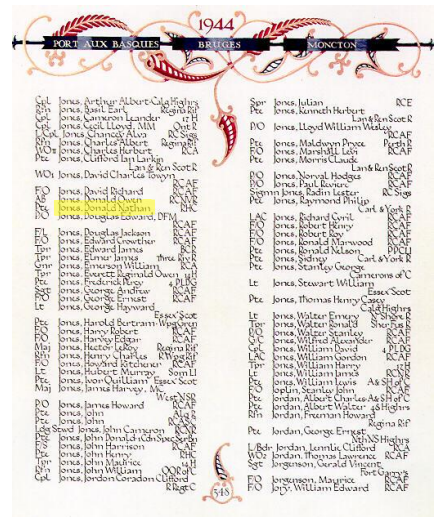 1944
PORT AUX BASQUES BRUGES MONCTON
Cpl Jones, Arthur Albert Calg Highrs
Rfn Jones, Basil Earl Regina Rif
Cpl Jones, Cameron Leander 17 H
Cpl Jones, Cecil Lloyd, MM Ont R
L/Cpl Jones, Chancey Alva RC Sigs
Rfn Jones, Charles Albert Regina Rif
WO1 Jones, Charles Herbert RCA
Pte Jones, Clifford Ian Larkin
Lan & Ren Scot R
WO1 Jones, David Charles Towyn
RCAF
F/O Jones, David Richard RCAF
AB Jones, Donald Owen RCNVR
Pte Jones, Donald Nathan RHC
P/O Jones, Douglas Edward, DFM
RCAF
F/L Jones, Douglas Jackson RCAF
F/O Jones, Edward Crowther RCAF
Tpr Jones, Edward James BCR
Tpr Jones, Elmer James Three Riv R
Gnr Jones, Emerson William RCA
Tpr Jones, Everett Reginald Owen 14 H
Pte Jones, Frederick Percy 4 PLDG
Sgt Jones, George Andrew RCAF
F/O Jones, George Ernest RCAF
Lt Jones, George Hayward
Essex Scot
Pte Jones, Harold Bertram Wpg Gren
P/O Jones, Harry Robert RCAF
F/O Jones, Harvey Edgar RCAF
Maj Jones, Hector LeRoy Regina Rif
Rfn Jones, Henry Charles R Wpg Rif
F/O Jones, Howard Kitchener RCAF
Lt Jones, Hubert Murray Som LI
Pte Jones, Ivor Quilliam Essex Scot
Maj Jones, James Harvey, MC
West NSR
P/O Jones, James Howard RCAF
Pte Jones, John Alq R
Pte Jones, John
Ldg Stwd Jones, John Cameron RCNVR
Pte Jones, John Donald 1 Cdn Spec Ser Bn
F/S Jones, John Harrison RCAF
Pte Jones, John Henry RHC
Tpr Jones, John Maurice 14 H
Rfn Jones, John William QOR of C
Cpl Jones, Jordon Coradon Clifford
R Regt C
Spr Jones, Julian RCE
Pte Jones, Kenneth Herbert
Lan & Ren Scot R
P/O Jones, Lloyd William Wesley
RCAF
Pte Jones, Maldwyn Pryce Perth R
F/O Jones, Marshall Levi RCAF
Pte Jones, Morris Claude
Lan & Ren Scot R
P/O Jones, Norval Hodges RCAF
P/O Jones, Paul Reviere RCAF
Sigmn Jones, Radin Lester RC Sigs
Pte Jones, Raymond Philip
Carl & York R
LAC Jones, Richard Cyril RCAF
F/O Jones, Robert Henry RCAF
F/O Jones, Robert Roy RCAF
F/O Jones, Ronald Marwood RCAF
Pte Jones, Ronald Nelson PPCLI
Pte Jones, Sidney Carl & York R
Pte Jones, Stanley George
Camerons of C
Lt Jones, Stewart William
Essex Scot
Pte Jones, Thomas Henry Casey
Calg Highrs
Lt Jones, Walter Emery N Shore R
Tpr Jones, Walter Ronald Sher Fus R
P/O Jones, Walter Stanley RCAF
G/C Jones, Wilfred Alexander RCAF
Cpl Jones, William David 4 PLDG
LAC Jones, William Gordon RCAF
Tpr Jones, William Harry 12 H
Lt Jones, William James RCNVR
Pte Jones, William Lewis A & SH of C
Sgt Jordan, Stanley John RCAF
Pte Jordan, Albert Charles A & SH of C
Pte Jordan, Albert Walter 48 Highrs
Rfn Jordan, Freeman Howard
Regina Rif
Pte Jordan, George Ernest
Nth NS Highrs
L/Bdr Jordan, Lennlie Clifford RCA
WO2 Jordan, Thomas Lawrence RCAF
Sgt Jorgenson, Gerald Vincent
Fort Garry's
F/O Jorgenson, Maurice RCAF
F/O Jory, William Edward RCAF
348